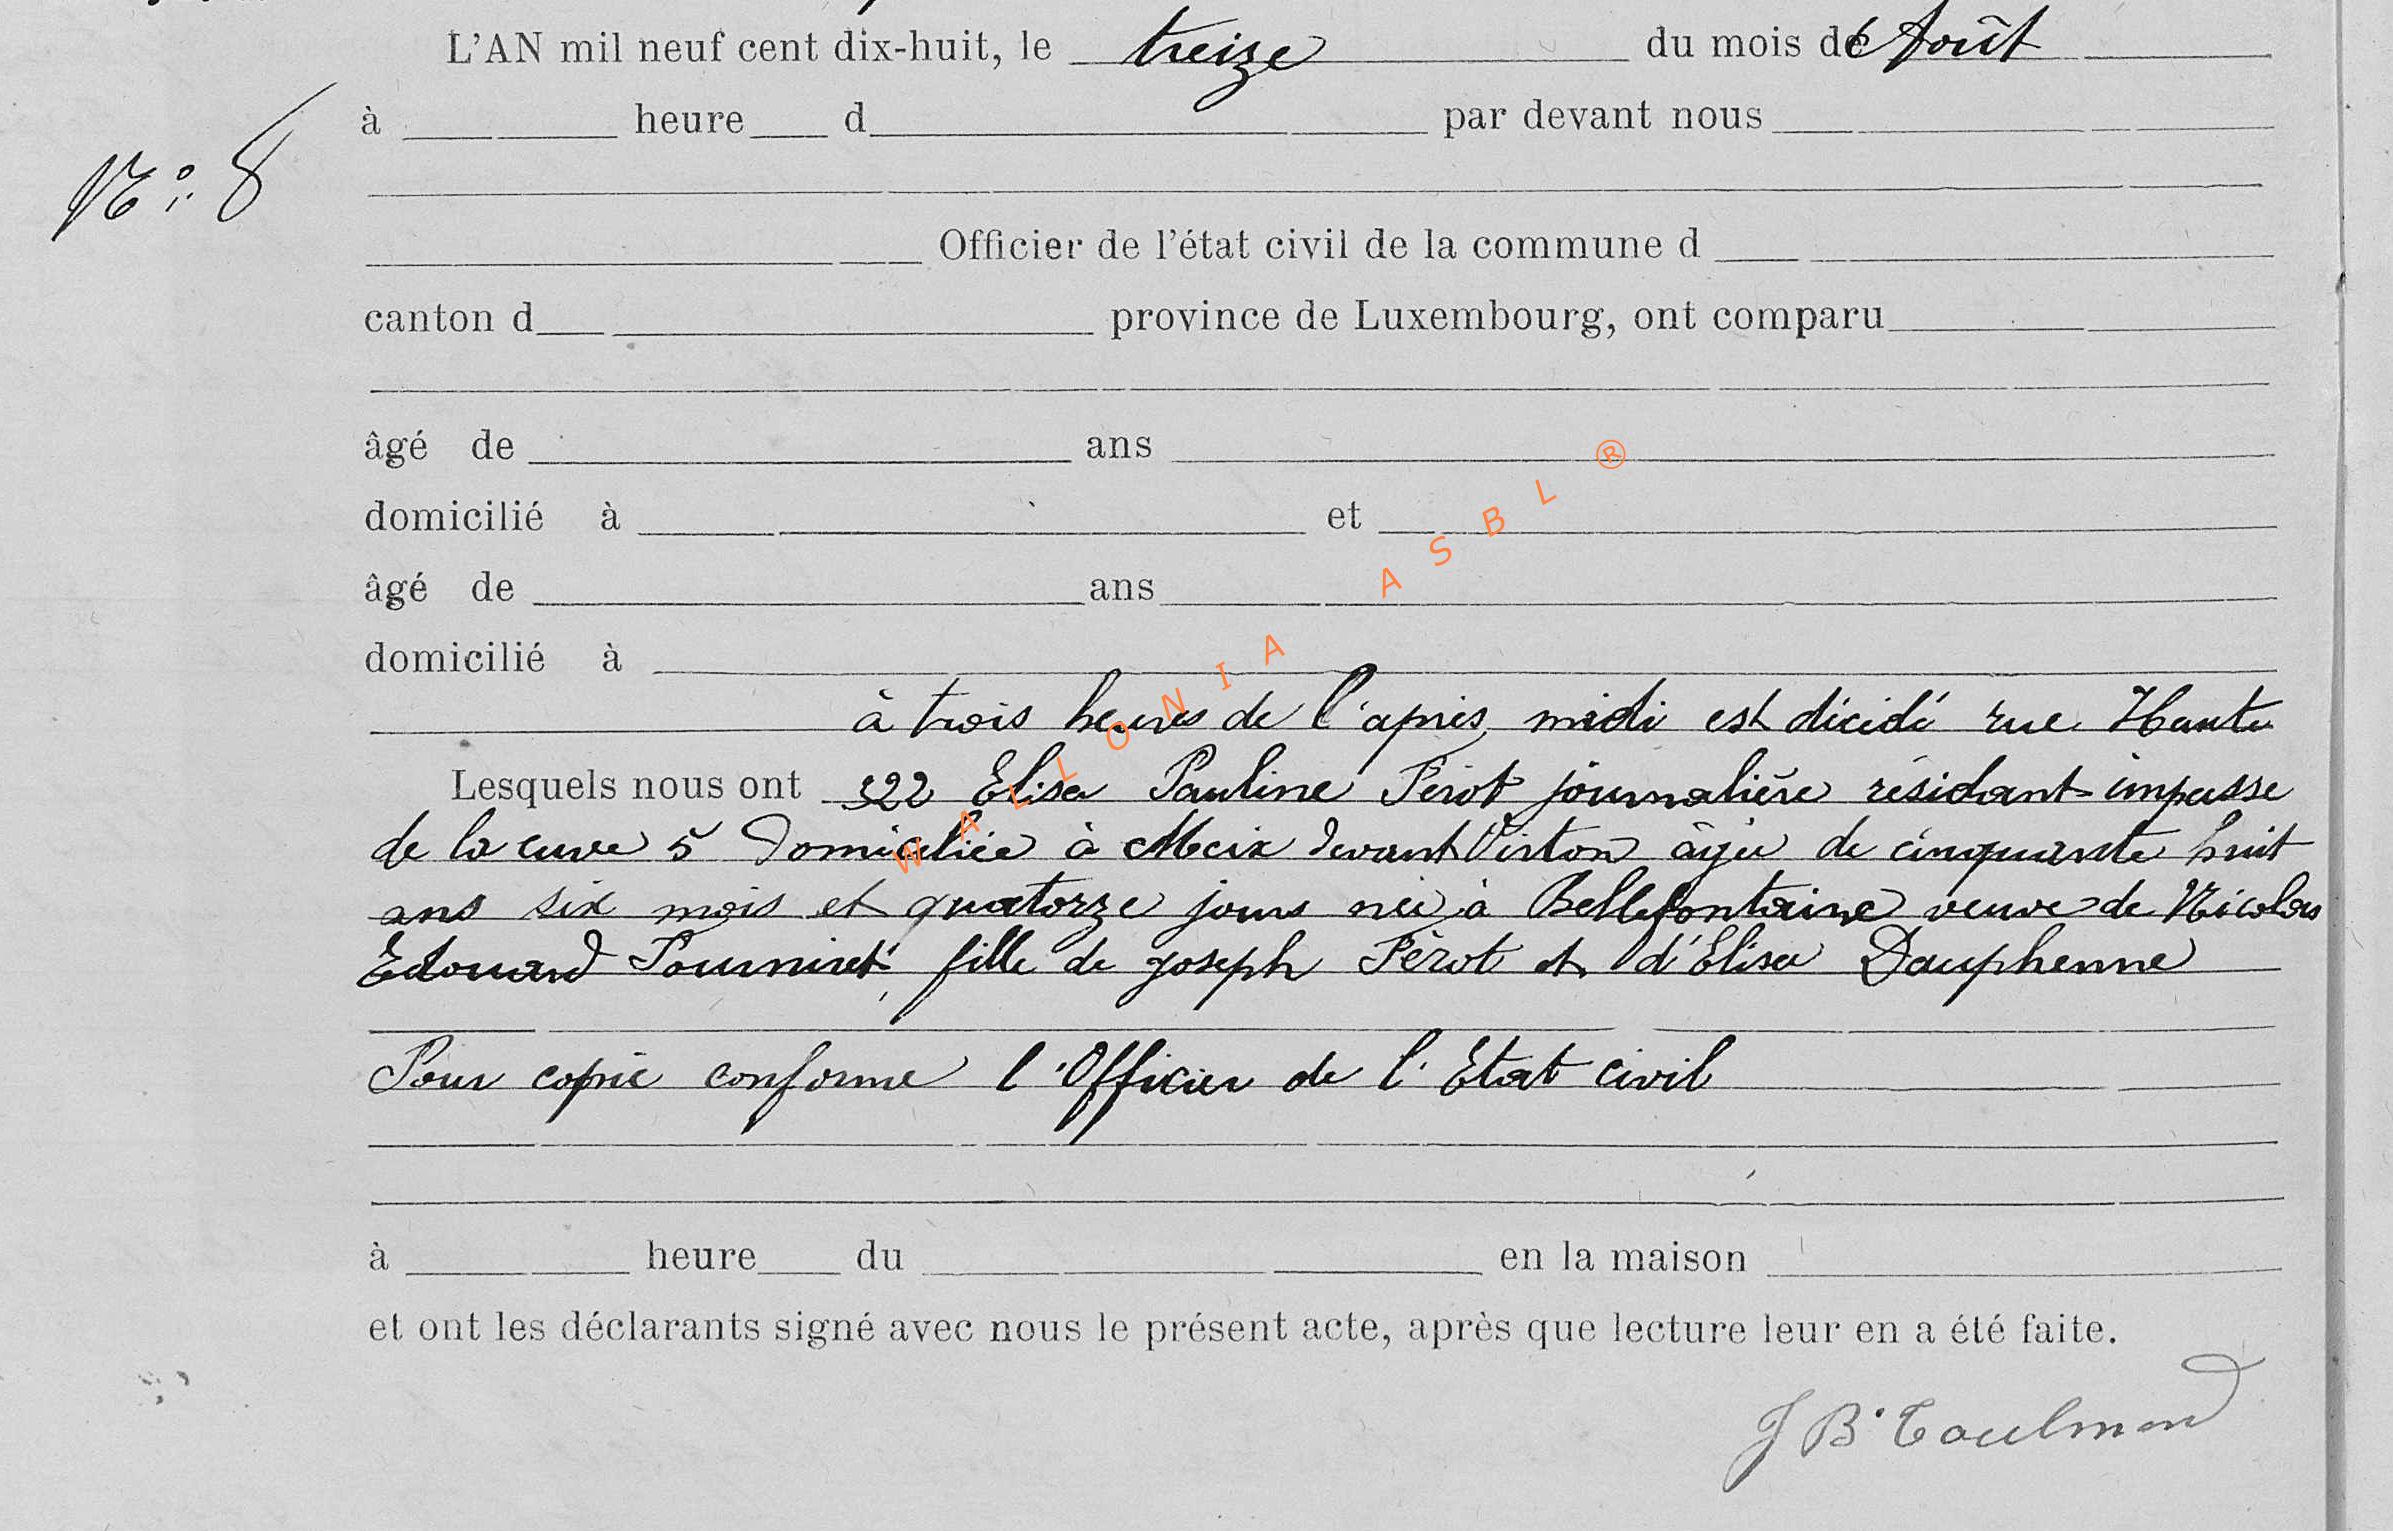 L'AN mil neuf cent dix-huit, le treize du mois de Août
à heure d par devant nous
N° 8
Officier de l'état civil de la commune d
canton d province de Luxembourg, ont comparu
âgé de ans
domicilié à et
âgé de ans
domicilié à
à trois heures de l'après midi est décédé rue Haute
Lesquels nous ont 322 Elisa Pauline Pérot journalière résidant impasse
de la cuve 5 Domiciliée à Meix devant Virton âgée de cinquante huit
ans six mois et quatorze jours née à Bellefontaine veuve de Nicolas
Edouard fille de joseph Pérot et d'Elisa Dauphenne
Pour copie conforme l'Officier de l'Etat civil
à heure du en la maison
et ont les déclarants signé avec nous le présent acte, après que lecture leur en a été faite.
J B Toulmond
WALLONIA ASBL ®